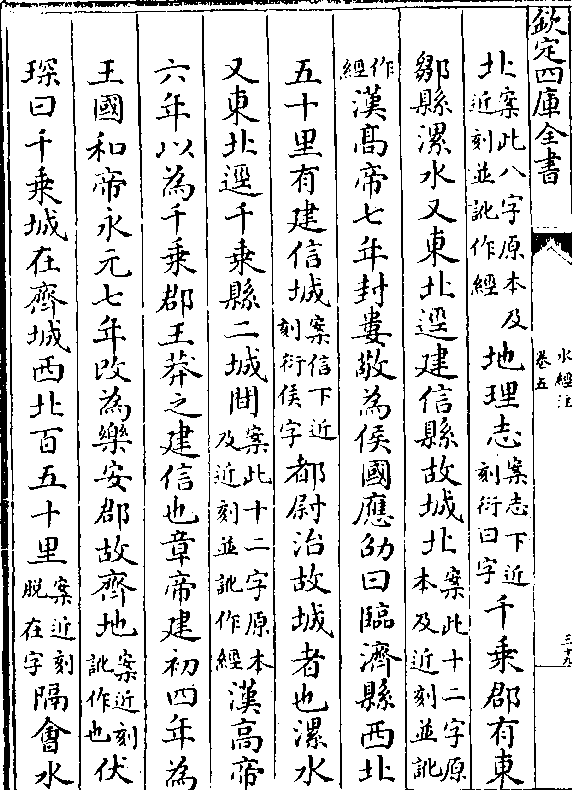 欽定四庫全書
水經注
卷五
三十九
北案此八字原本及近刻並訛作經地理志案志下近刻衍曰字千乗郡有東
鄒縣漯水又東北逕建信縣故城北案此十二字原本及近刻並訛
作經漢髙帝七年封婁敬為侯國應劭曰臨濟縣西北
五十里有建信城案信下近刻衍侯字都尉治故城者也漯水
又東北逕千乗縣二城間案此十二字原本及近刻並訛作經漢高帝
六年以為千乗郡王莽之建信也章帝建初四年為
王國和帝永元七年改為樂安郡故齊地案近刻訛作也伏
琛曰千乗城在齊城西北百五十里案近刻脫在字隔會水